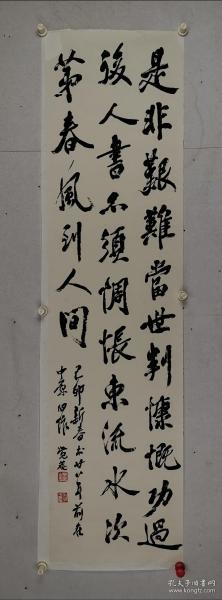 是非艱難當世判慷慨功過
後人書不須惆悵東流水次
第春風到人間
己卯新春書廿年前在
中原旧作
孔夫子旧书网